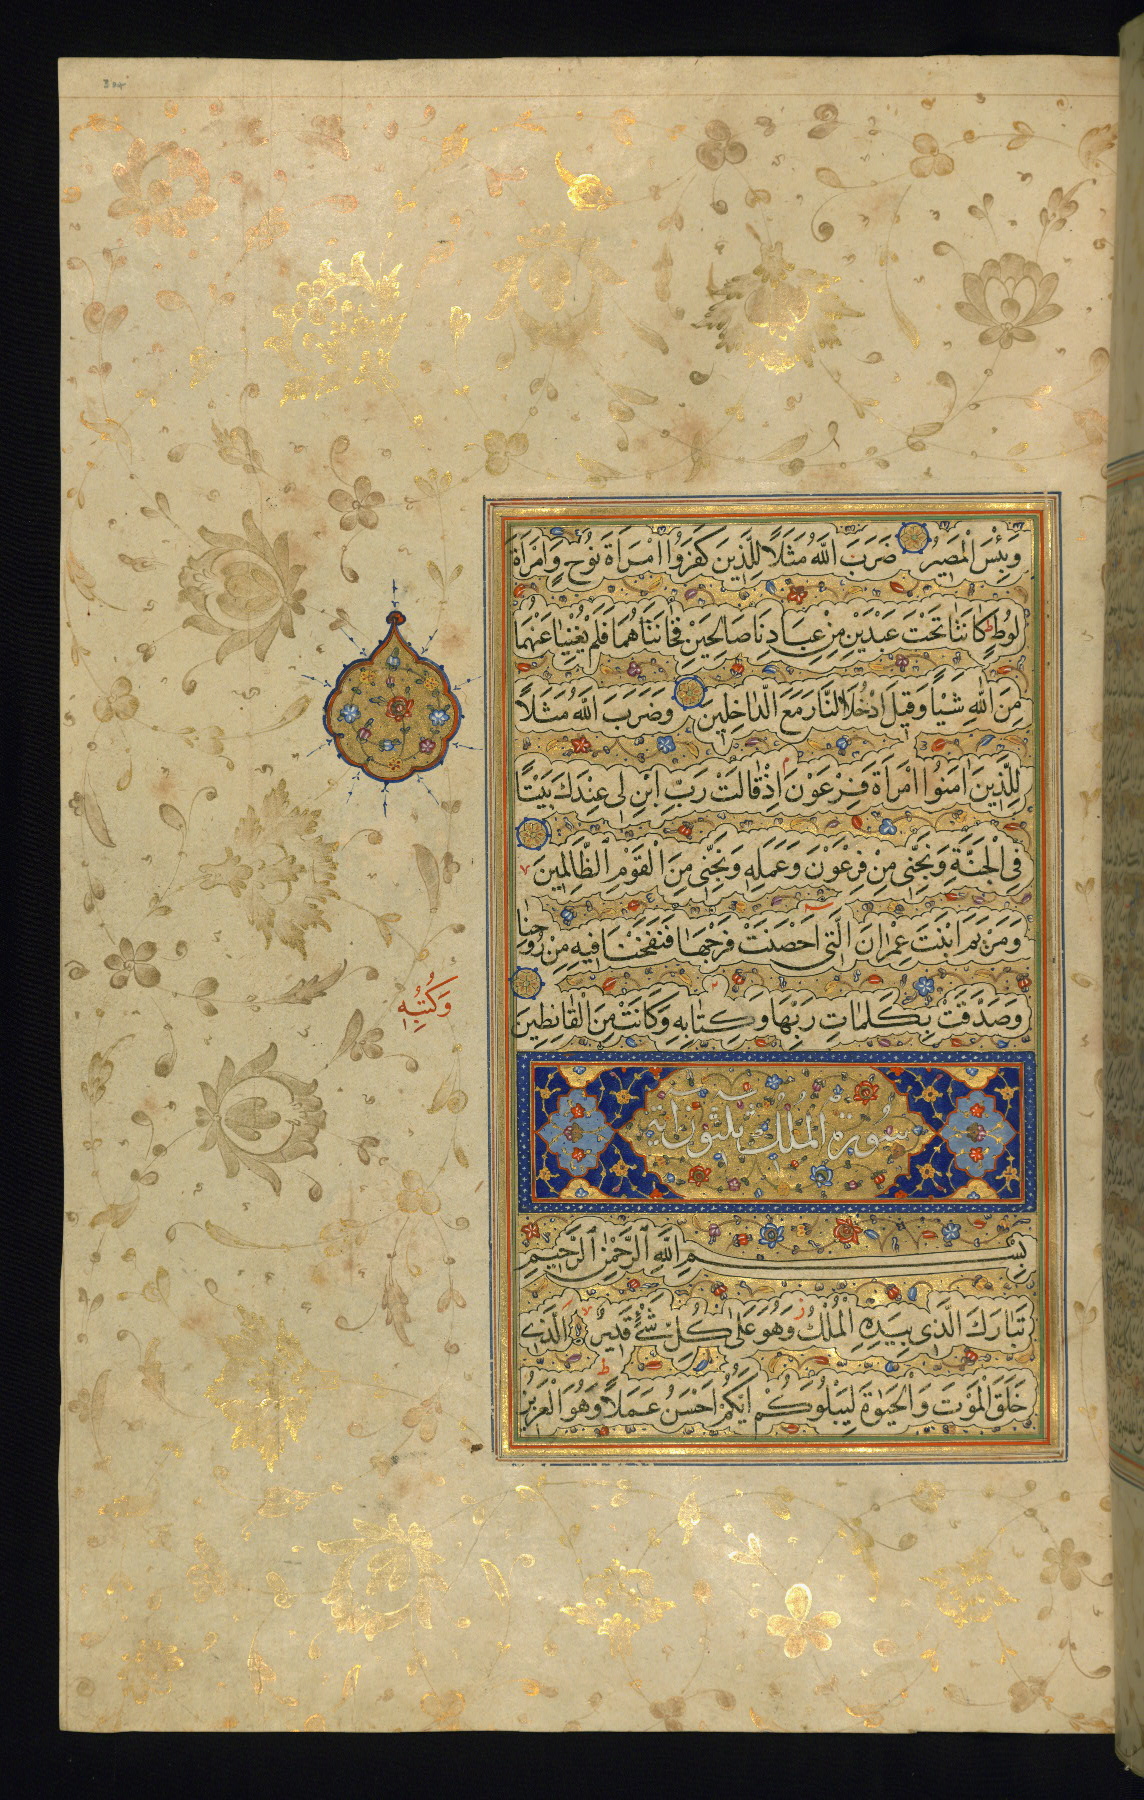 وَبِئْسَ الْمَصِيرُ ضَرَبَ اللَّهُ مَثَلًا لِلَّذِينَ كَفَرُوا امْرَأَةَ نُوحٍ وَامْرَأَةَ
لُوطٍ كَانَتَا تَحْتَ عَبْدَيْنِ مِنْ عِبَادِنَا صَالِحَيْنِ فَخَانَتَاهُمَا فَلَمْ يُغْنِيَا عَنْهُمَا
مِنَ اللَّهِ شَيْئًا وَقِيلَ ادْخُلَا النَّارَ مَعَ الدَّاخِلِينَ وَضَرَبَ اللَّهُ مَثَلًا
لِلَّذِينَ اٰمَنُوا امْرَأَةَ فِرْعَوْنَ اِذْ قَالَتْ رَبِّ ابْنِ لِي عِنْدَكَ بَيْتًا
فِي الْجَنَّةِ وَنَجِّنِي مِنْ فِرْعَوْنَ وَعَمَلِهِ وَنَجِّنِي مِنَ الْقَوْمِ الظَّالِمِينَ
وَمَرْيَمَ ابْنَتَ عِمْرَانَ الَّتِي اَحْصَنَتْ فَرْجَهَا فَنَفَخْنَا فِيهِ مِنْ رُوحِنَا
وَصَدَّقَتْ بِكَلِمَاتِ رَبِّهَا وَكِتَابِهِ وَكَانَتْ مِنَ الْقَانِتِينَ
وَكُتُبِهِ
سورة الملك ثلثون اية
بِسْمِ اللَّهِ الرَّحْمٰنِ الرَّحِيمِ
تَبَارَكَ الَّذِي بِيَدِهِ الْمُلْكُ وَهُوَ عَلَى كُلِّ شَيْءٍ قَدِيرٌ الَّذِي
خَلَقَ الْمَوْتَ وَالْحَيٰوةَ لِيَبْلُوَكُمْ اَيُّكُمْ اَحْسَنُ عَمَلًا وَهُوَ الْعَزِيزُ